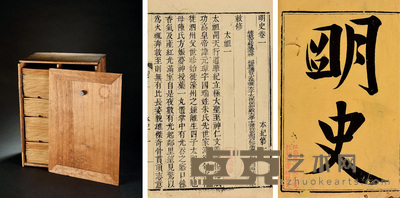 明史
明史卷一
本紀第
敕修
太祖一
太祖開天行道肇紀立極大聖至神仁文義
功高皇帝諱元璋字國瑞姓朱氏先世家
徙泗州父世珍始徙濠州之鍾離生四子太
母陳氏方娠夢神授藥一丸置掌中有光吞之寤口
香氣及產紅光滿室自是夜數有光起鄰里望見驚以
為火輒奔救至則無有比長姿貌雄傑奇骨貫頂志意
艺术网
zhuokearts.com